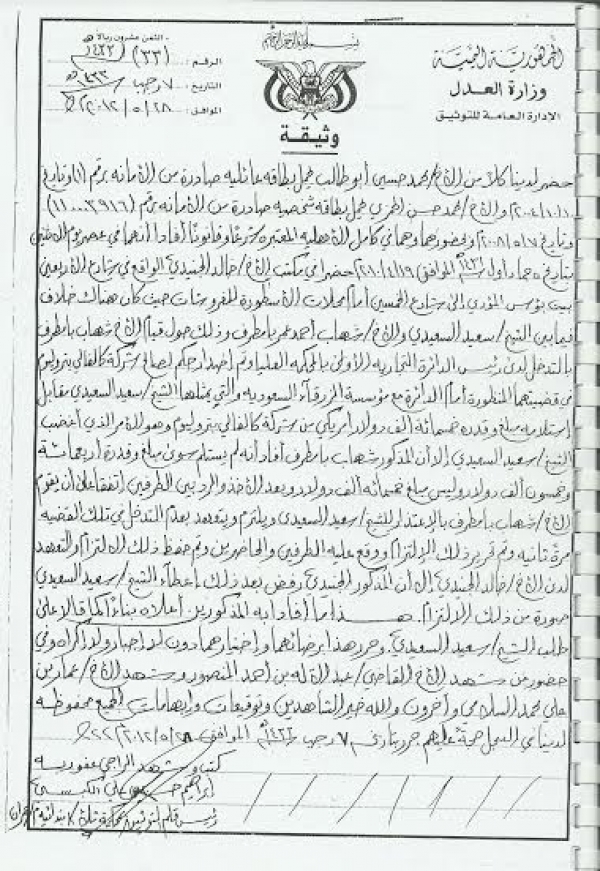 بسم الله الرحمن الرحيم
الثمن عشرون ريالاً
الجمهورية اليمنية
وزارة العدل
الإدارة العامة للتوثيق
الرقم: (٣٣) ١٤٣٣هـ
التاريخ ٧ رجب ١٤٣٣هـ
الموافق: ٢٨/٥/٢٠١٢م
وثيقة
حضر لدينا كلا من الأخ/ محمد حسين أبو طالب يحمل بطاقة عائلية صادرة من الأمانه برقم (١) وتاريخ
والأخ/ محمد حسن الحمزي يحمل بطاقة شخصية صادرة من الأمانه برقم (١١٠٠٠٣٩١٦)
وتاريخ ٧/٥/٢٠٠٨م وبحضورهما وهما في كامل الأهليه المعتبره شرعا وقانونا أفادا أنهما في عصر يوم الاثنين
بتاريخ ٥ جماد أول ١٤٣١هـ الموافق ١٩/٤/٢٠١٠م حضرا في مكتب الأخ/ خالد الجنيدي الواقع في شارع الأربعين
بيت بوس المؤدي إلى شارع الخمسين أمام محلات الأسطورة للمفروشات حيث كان هناك خلاف
فيما بين الشيخ/ سعيد السعيدي والأخ/ شهاب أحمد عمر بامطرف وذلك حول قيام الأخ شهاب بامطرف
بالتدخل لدى رئيس الدائرة التجارية الأولى بالمحكمه العليا وتم إصدار حكم لصالح شركة كالفالي بتروليوم
في قضيتهما المنظورة أمام الدائرة مع مؤسسة الزرقاء السعوديه والتي يمثلها الشيخ/ سعيد السعيدي مقابل
إستلامه مبلغ وقدره خمسمائة ألف دولار أمريكي من شركة كالفالي بتروليوم وهو الأمر الذي أغضب
الشيخ/ سعيد السعيدي إلا أن المذكور شهاب بامطرف أفاد أنه لم يستلم سوى مبلغ وقدرة أربعمائة
وخمسون ألف دولار وليس مبلغ خمسمائه ألف دولار وبعد الأخذ والرد بين الطرفين إتفقا على أن يقوم
الأخ/ شهاب بامطرف بالإعتذار للشيخ/ سعيد السعيدي ويلتزم ويتعهد بعدم التدخل في تلك القضيه
مرة ثانيه وتم تحرير ذلك الإلتزام ووقع عليه الطرفين والحاضرين وتم حفظ ذلك الالتزام والتعهد
لدى الأخ/ خالد الجنيدي إلا أن المذكور الجنيدي رفض بعد ذلك إعطاء الشيخ/ سعيد السعيدي
صورة من ذلك الالتزام. هذا ما أفاد به المذكورين أعلاه بناءً كما قالا على
طلب الشيخ/ سعيد السعيدي. وحرر هذا برضائهما وإختيارهما دون إجبار ولا إكراه وفي
حضور من شهد الأخ القاضي/ عبد الاله بن أحمد المنصور وشهد الأخ/ عمار بن
علي محمد السلامي وآخرون والله خير الشاهدين وتوقيعات وإبهامات الجميع محفوظه
لدينا في السجل حجة عليهم حرر بتاريخ ٧ رجب ١٤٣٣هـ الموافق ٢٨/٥/٢٠١٢م
كتب وشهد الراجي عفو ربه
إبراهيم علي الكبسي
رئيس قلم التوثيق بمحكمة